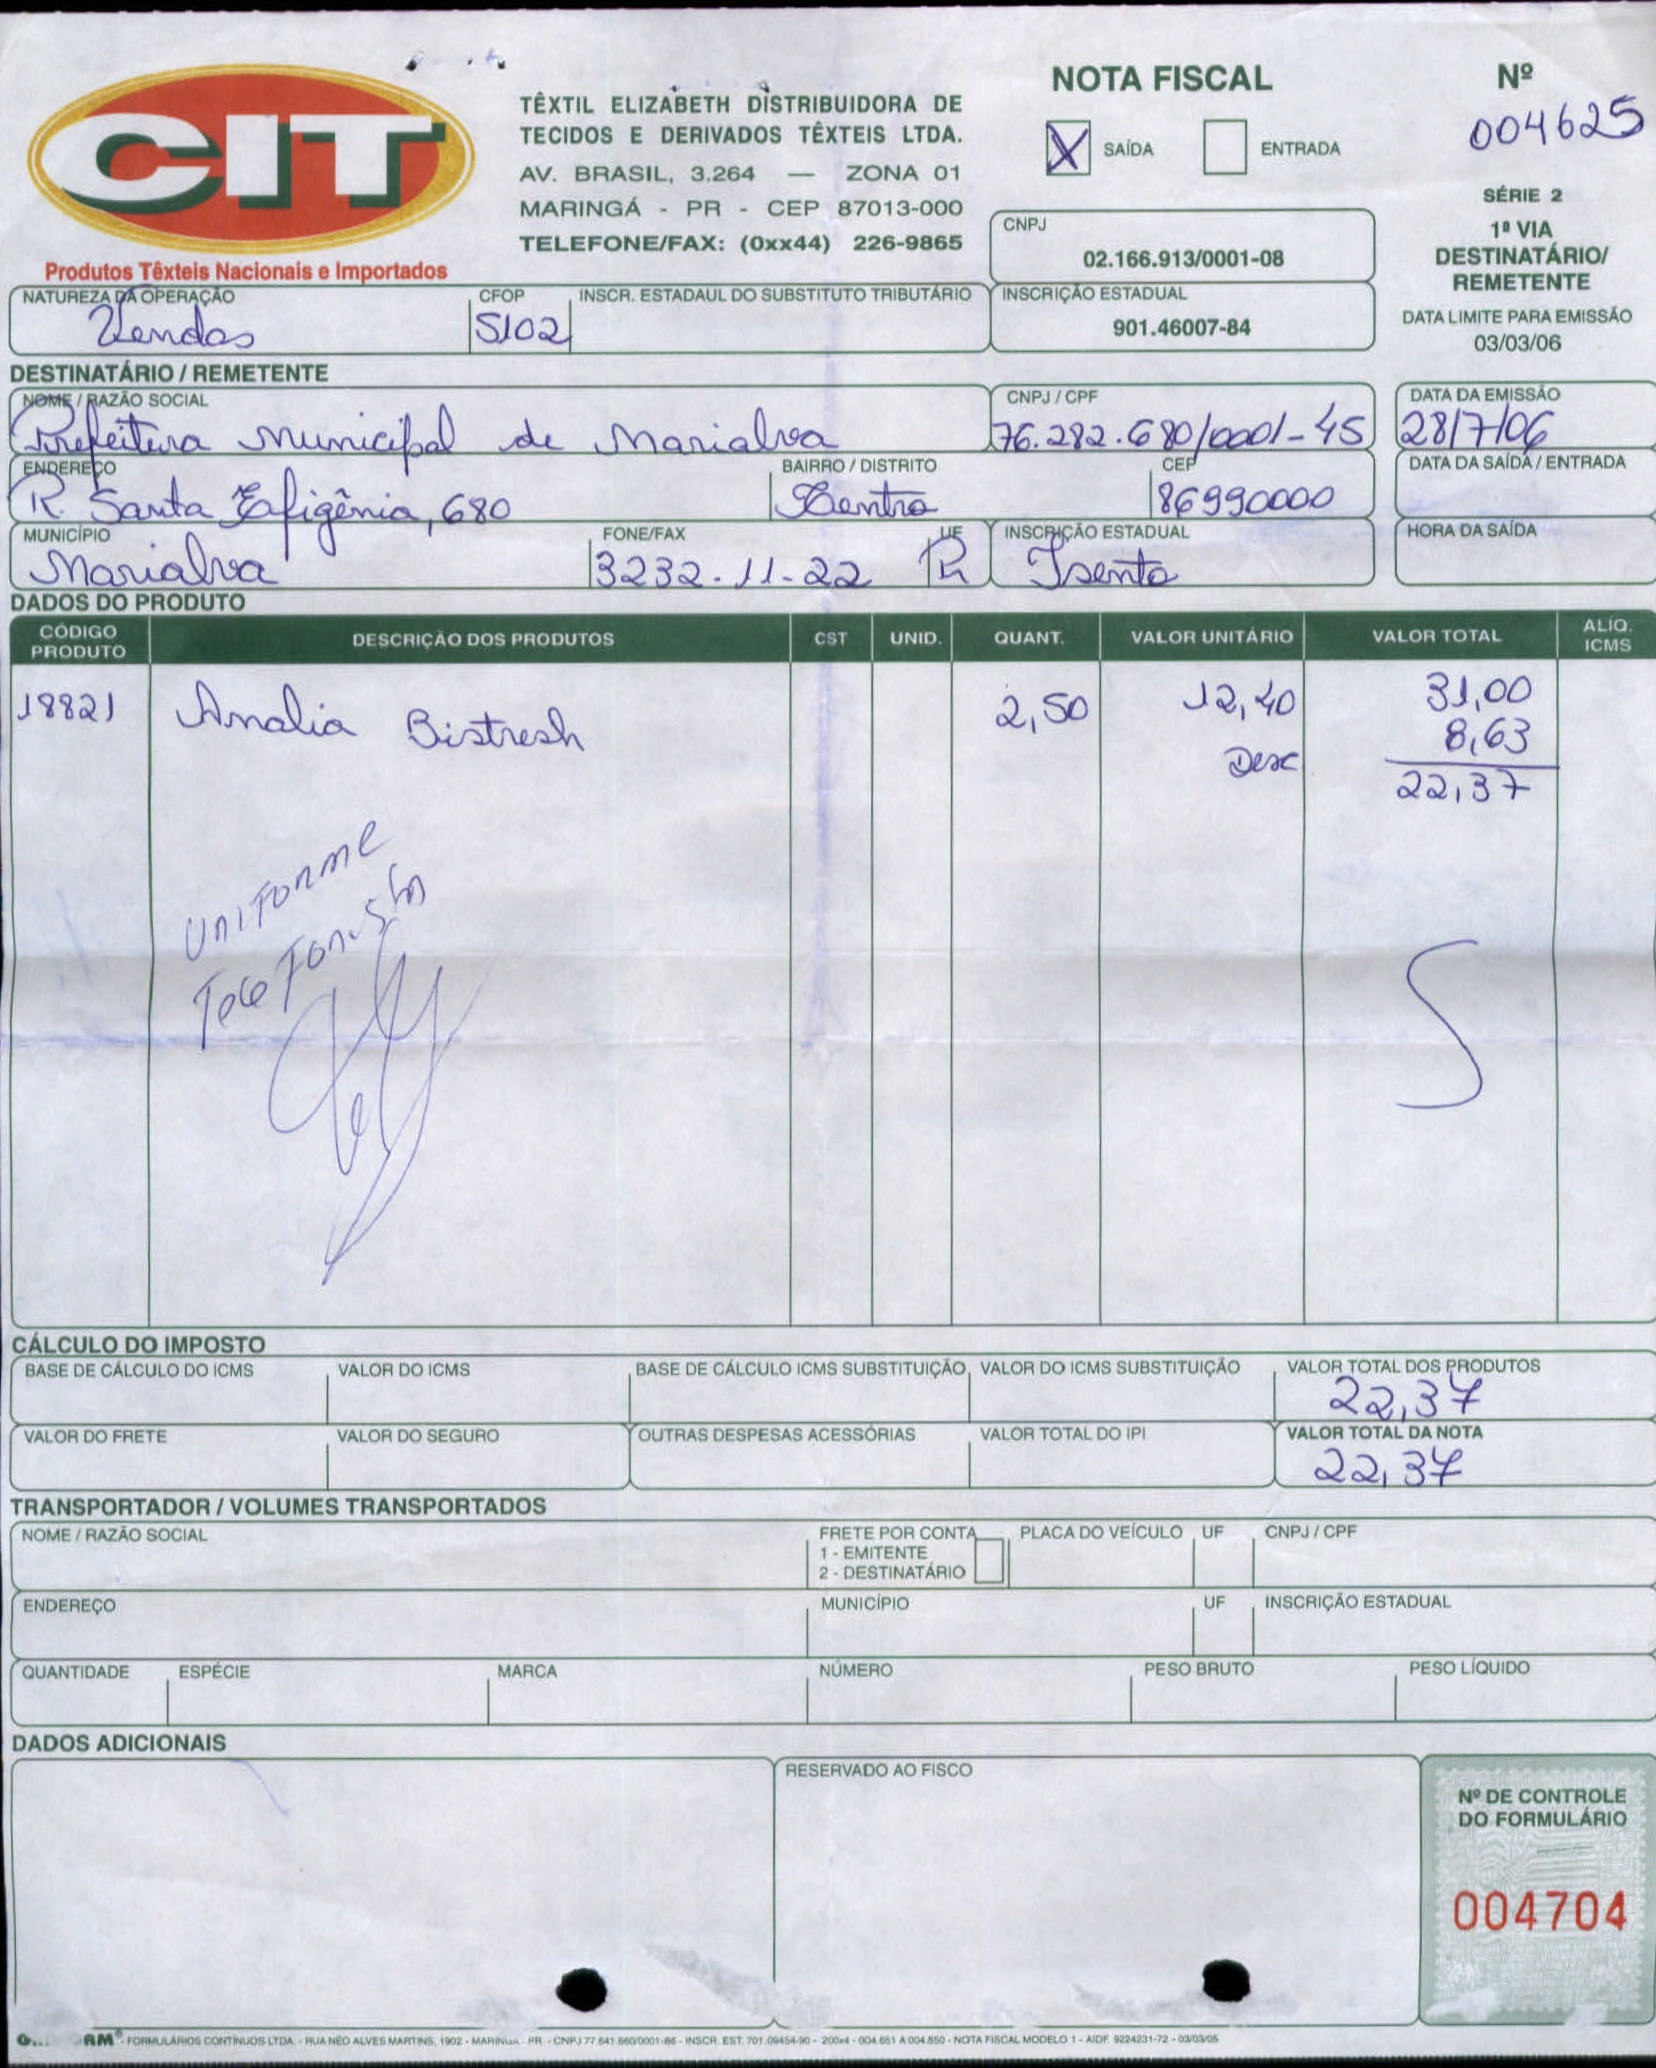 CIT
Produtos Têxteis Nacionais e Importados
TÊXTIL ELIZABETH DISTRIBUIDORA DE
TECIDOS E DERIVADOS TÊXTEIS LTDA.
AV. BRASIL, 3.264 — ZONA 01
MARINGÁ - PR - CEP 87013-000
TELEFONE/FAX: (0xx44) 226-9865
NOTA FISCAL
X SAÍDA ENTRADA
Nº
004625
SÉRIE 2
1ª VIA
DESTINATÁRIO/
REMETENTE
DATA LIMITE PARA EMISSÃO
03/03/06
CNPJ
02.166.913/0001-08
NATUREZA DA OPERAÇÃO CFOP INSCR. ESTADAUL DO SUBSTITUTO TRIBUTÁRIO INSCRIÇÃO ESTADUAL
Vendas 5102 901.46007-84
DESTINATÁRIO / REMETENTE
NOME / RAZÃO SOCIAL CNPJ / CPF DATA DA EMISSÃO
Prefeitura Municipal de Marialva 76.282.680/0001-45 28/7/06
ENDEREÇO BAIRRO / DISTRITO CEP DATA DA SAÍDA / ENTRADA
R. Santa Efigênia, 680 Centro 86990000
MUNICÍPIO FONE/FAX UF INSCRIÇÃO ESTADUAL HORA DA SAÍDA
Marialva 3232-11-22 Pr Isento
DADOS DO PRODUTO
CÓDIGO PRODUTO DESCRIÇÃO DOS PRODUTOS CST UNID. QUANT. VALOR UNITÁRIO VALOR TOTAL ALÍQ. ICMS
18821 Analia Bistresh 2,50 12,40 31,00
Desc 8,63
22,37
UNIFORME
TeleFonista
CÁLCULO DO IMPOSTO
BASE DE CÁLCULO DO ICMS VALOR DO ICMS BASE DE CÁLCULO ICMS SUBSTITUIÇÃO VALOR DO ICMS SUBSTITUIÇÃO VALOR TOTAL DOS PRODUTOS
22,37
VALOR DO FRETE VALOR DO SEGURO OUTRAS DESPESAS ACESSÓRIAS VALOR TOTAL DO IPI VALOR TOTAL DA NOTA
22,37
TRANSPORTADOR / VOLUMES TRANSPORTADOS
NOME / RAZÃO SOCIAL FRETE POR CONTA PLACA DO VEÍCULO UF CNPJ / CPF
1 - EMITENTE
2 - DESTINATÁRIO
ENDEREÇO MUNICÍPIO UF INSCRIÇÃO ESTADUAL
QUANTIDADE ESPÉCIE MARCA NÚMERO PESO BRUTO PESO LÍQUIDO
DADOS ADICIONAIS
RESERVADO AO FISCO
Nº DE CONTROLE
DO FORMULÁRIO
004704
FORMULÁRIOS CONTÍNUOS LTDA. - RUA NEO ALVES MARTINS, 1902 - MARINGÁ - PR - CNPJ 77.641.660/0001-86 - INSCR. EST. 701.09454-90 - 200x4 - 004.651 A 004.850 - NOTA FISCAL MODELO 1 - AIDF. 9224231-72 - 03/03/05